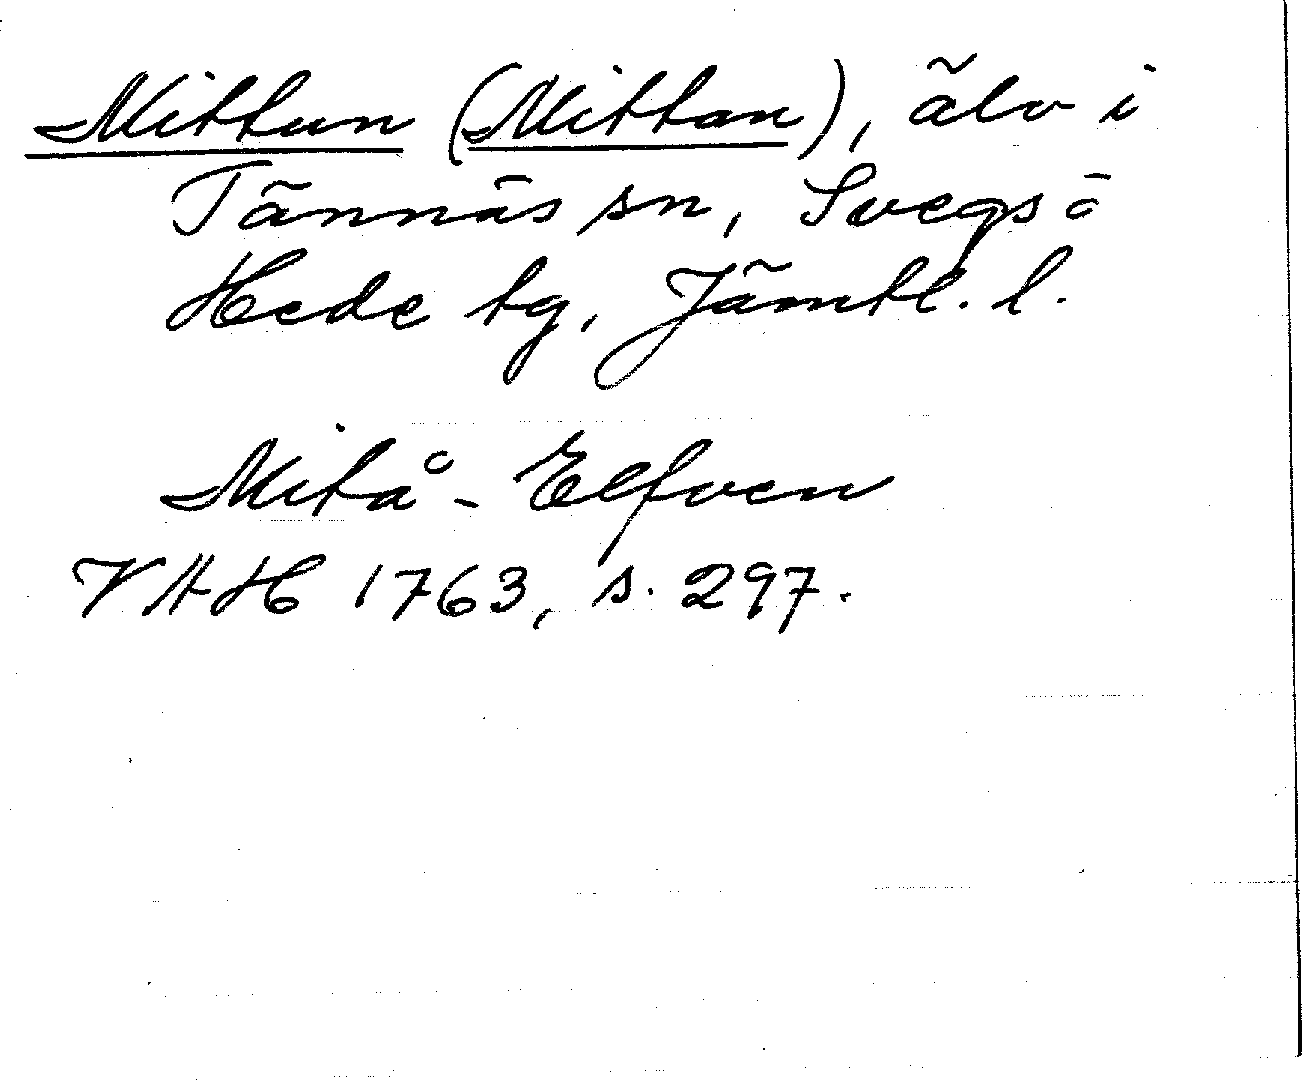 Mittun (Mittan), älv i
Tännäs sn, Svegs o
Hede tg, Jämtl. l.
Mitå - Elfven
VAH 1763, s. 297.